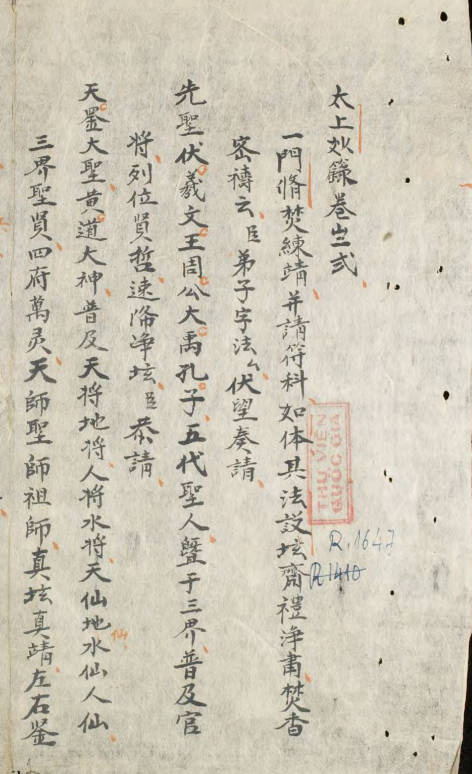 太上妙籙卷𡶀弍
一門脩焚練靖并請符科如体具法設坛齋禮浄肅焚香
宻禱云臣弟子字法厶伏望奏請
先聖伏羲文王周公大禹孔子五代聖人曁于三界普及官
将列位賢哲速降浄坛臣恭請
天罡大聖黄道大神普及天将地将人将水将天仙地水仙人仙
仙
三界聖賢四府萬灵天師聖師祖師真坛真靖左右鉴
THƯ VIỆN
QUỐC GIA
R.1647
R1410